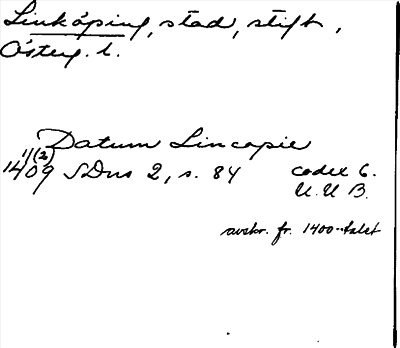 Linköping, stad, stift,
Österg. l.
Datum Lincopie
11(2)
1409 SDns 2, s. 84 codex 6.
U. U B.
avskr. fr. 1400-talet